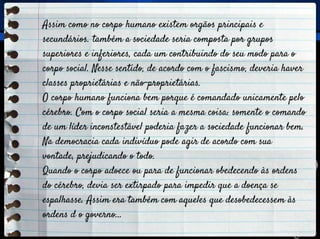 Assim como no corpo humano existem orgãos principais e
secundários. também a sociedade seria composta por grupos
superiores e inferiores, cada um contribuindo do seu modo para o
corpo social. Nesse sentido, de acordo com o fascismo, deveria haver
classes proprietárias e não-proprietárias.
O corpo humano funciona bem porque é comandado unicamente pelo
cérebro. Com o corpo social seria a mesma coisa: somente o comando
de um líder inconstestável poderia fazer a sociedade funcionar bem.
Na democracia cada indivíduo pode agir de acordo com sua
vontade, prejudicando o todo.
Quando o corpo adoece ou para de funcionar obedecendo às ordens
do cérebro, devia ser extirpado para impedir que a doença se
espalhasse. Assim era também com aqueles que desobedecessem às
ordens d o governo...